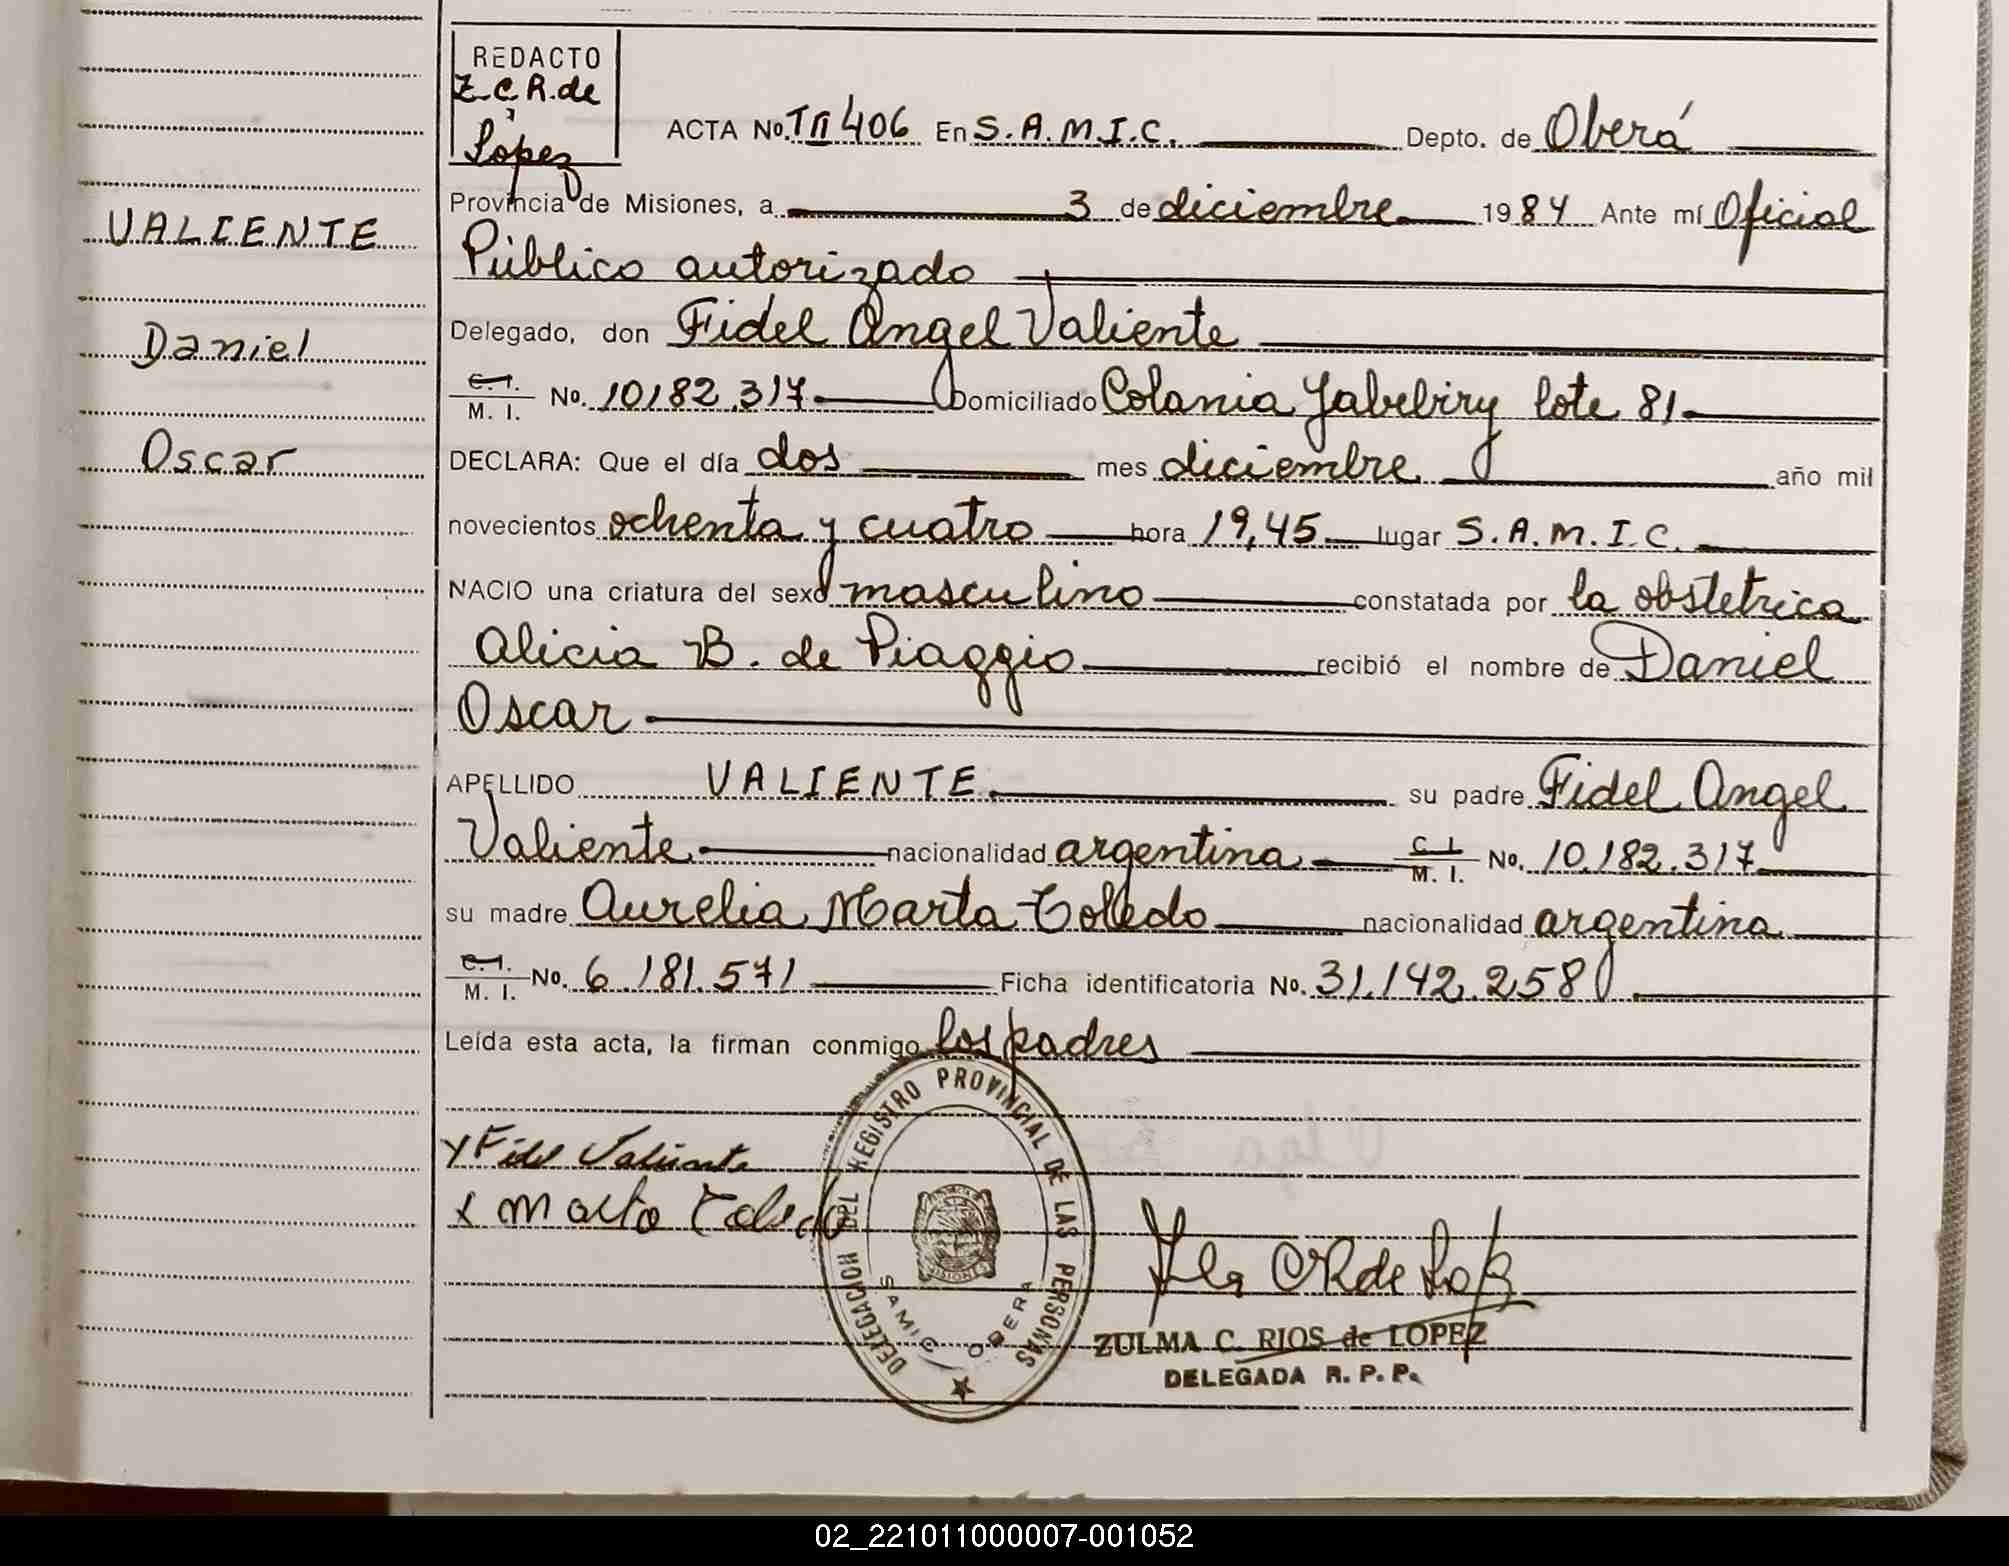 REDACTO
Z.C.R.de
López
ACTA No. TII 406 En S.A.M.I.C. Depto. de Oberá
Provincia de Misiones, a 3 de diciembre 1984 Ante mí Oficial
Público autorizado
Delegado, don Fidel Angel Valiente
C.I. M. I. No. 10.182.317 Domiciliado Colonia Yabebiry lote 81
DECLARA: Que el día dos mes diciembre año mil
novecientos ochenta y cuatro hora 19,45 lugar S.A.M.I.C.
NACIO una criatura del sexo masculino constatada por la obstetrica
Alicia B. de Piaggio recibió el nombre de Daniel
Oscar
APELLIDO VALIENTE su padre Fidel Angel
Valiente nacionalidad argentina C.I. M. I. No. 10.182.317
su madre Aurelia Marta Toledo nacionalidad argentina
C.I. M. I. No. 6.181.571 Ficha identificatoria No. 31.142.258
Leída esta acta, la firman conmigo los padres
VALIENTE
Daniel
Oscar
x Fidel Valiente
x Marta Toledo
DELEGACION DEL REGISTRO PROVINCIAL DE LAS PERSONAS
SAMIC OBERA
ZULMA C. RIOS de LOPEZ
DELEGADA R. P. P.
02_221011000007-001052